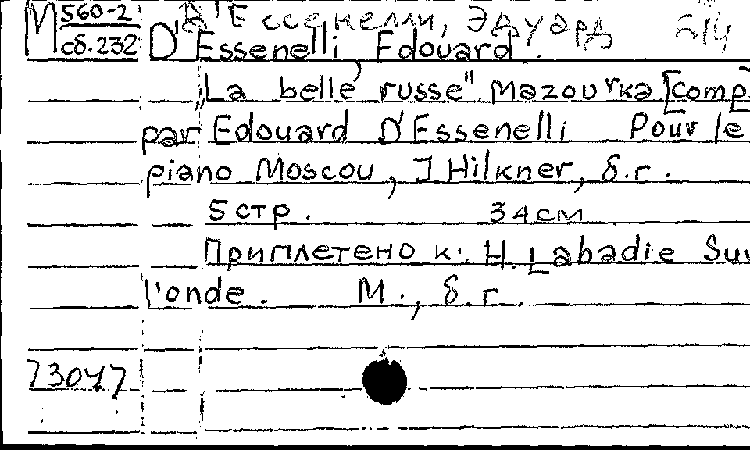 М 560-2 Д'Ессенелли, Эдуард
сб. 232 D'Essenelli, Edouard.
„La belle russe" Mazourka [comp
par Edouard D'Essenelli Pour le
piano Moscou, J Hilkner, б.г.
5 стр. 34 см
Приплетено к: H. Labadie Suv
l'onde. М., б.г.